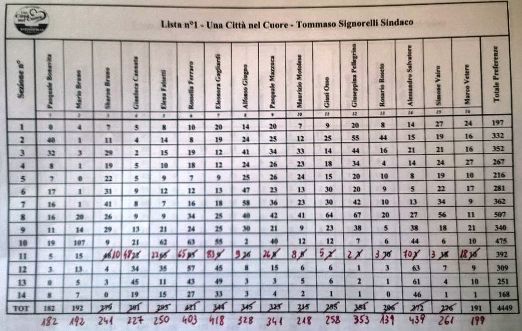 Lista n°1 - Una Città nel Cuore - Tommaso Signorelli Sindaco
Sezione n° Pasquale Bonavita Mario Bruno Sharon Bruno Gianluca Cannata Elena Falsetti Rossella Ferraro Eleonora Gagliardi Alfonso Giugno Pasquale Mazzuca Maurizio Motolese Giusi Osso Giuseppina Pellegrino Rosario Alessandro Salvatore Simone Vairo Marco Vetere Totale Preferenze
1 2 3 4 5 6 7 8 9 10 11 12 13 14 15 16
1 0 4 7 5 8 10 20 14 20 7 9 20 8 14 27 24 197
2 40 1 11 4 14 8 19 24 25 12 25 55 44 15 19 16 332
3 32 3 29 2 15 19 12 41 34 33 14 44 16 21 21 16 352
4 8 1 19 5 10 18 12 24 26 23 18 34 4 14 24 27 267
5 7 0 22 5 9 7 9 25 26 24 15 20 10 8 19 10 216
6 17 1 31 9 12 12 13 47 23 13 30 20 9 5 22 17 281
7 16 1 41 8 7 16 18 58 36 23 30 42 10 13 34 9 362
8 16 20 26 9 9 34 25 40 42 41 64 67 20 27 56 11 507
9 11 14 29 13 21 24 25 30 21 9 23 38 5 38 18 21 340
10 19 107 9 21 62 63 55 2 40 12 12 7 6 44 6 10 475
11 5 15 392
12 3 13 4 34 35 57 45 8 15 6 6 1 3 63 7 9 309
13 0 5 3 45 11 43 49 3 3 5 6 2 1 64 3 8 251
14 8 7 0 19 15 27 33 3 4 2 1 1 0 46 1 1 168
TOT 182 192 191 4449
182 192 241 227 250 403 418 328 341 218 258 353 139 439 261 199